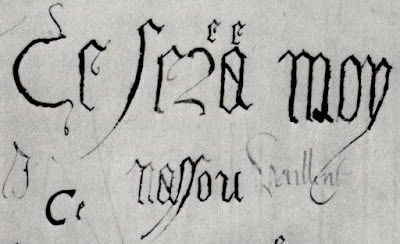 Ce sera moy
Ce nassou